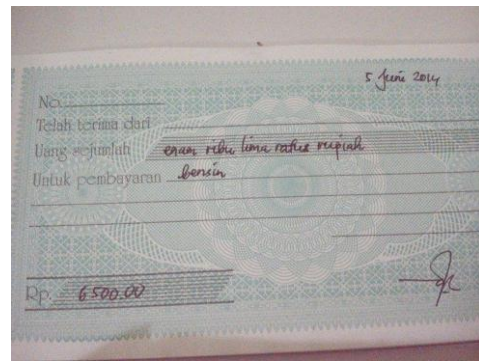 5 June 2014
No.
Telah terima dari
Uang sejumlah enam ribu lima ratus rupiah
Untuk pembayaran bensin
Rp. 6500.00